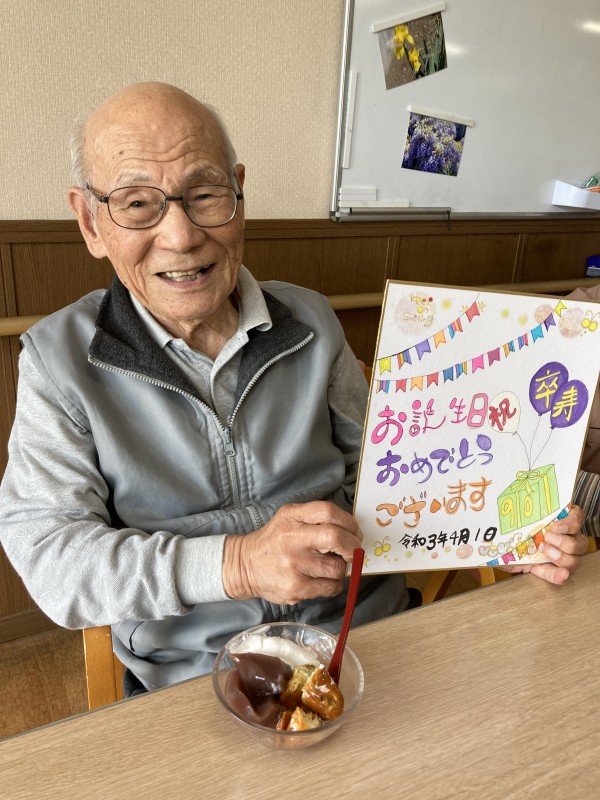 Keep
on
Smiling
お誕生日
祝
卒
寿
おめでとう
ございます
90才
令和3年4月1日